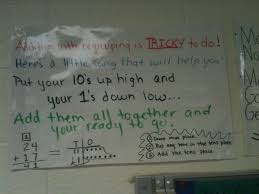 Addition with regrouping is TRICKY to do!
Here's a little song that will help you!
Put your 10's up high and
your 1's down low...
Add them all together and
your ready to go.
1
24
+ 17
41
=
T O
① 
② Put any tens in the tens place
③ Add the tens place